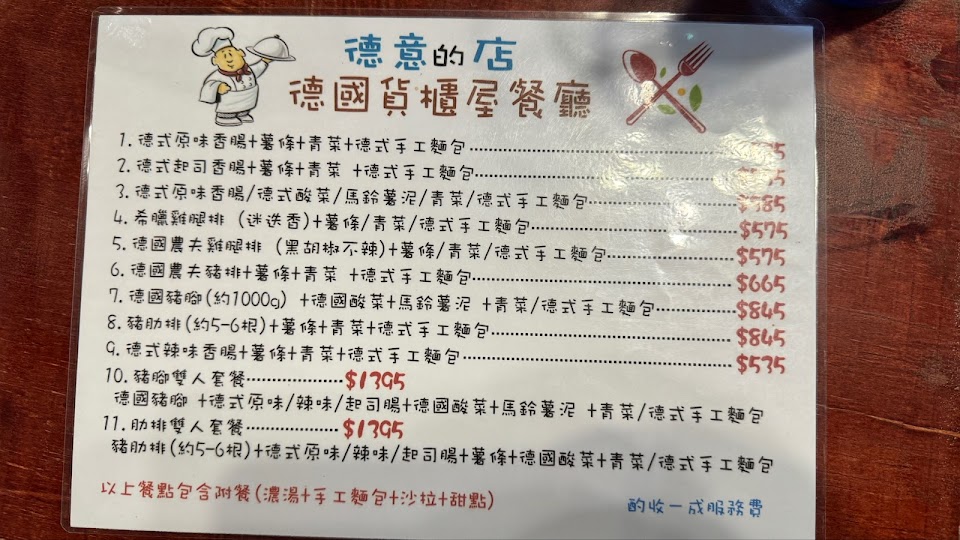 德意的店
德國貨櫃屋餐廳
1. 德式原味香腸+薯條+青菜+德式手工麵包
2. 德式起司香腸+薯條+青菜 +德式手工麵包
3. 德式原味香腸/德式酸菜/馬鈴薯泥/青菜/德式手工麵包 $585
4. 希臘雞腿排 (迷迭香)+薯條/青菜/德式手工麵包 $575
5. 德國農夫雞腿排 (黑胡椒不辣)+薯條/青菜/德式手工麵包 $575
6. 德國農夫豬排+薯條+青菜 +德式手工麵包 $665
7. 德國豬腳(約1000g) +德國酸菜+馬鈴薯泥 +青菜/德式手工麵包 $845
8. 豬肋排(約5-6根)+薯條+青菜+德式手工麵包 $845
9. 德式辣味香腸+薯條+青菜+德式手工麵包 $535
10. 豬腳雙人套餐 $1395
德國豬腳 +德式原味/辣味/起司腸+德國酸菜+馬鈴薯泥 +青菜/德式手工麵包
11. 肋排雙人套餐 $1395
豬肋排(約5-6根)+德式原味/辣味/起司腸+薯條+德國酸菜+青菜/德式手工麵包
以上餐點包含附餐(濃湯+手工麵包+沙拉+甜點)
酌收一成服務費